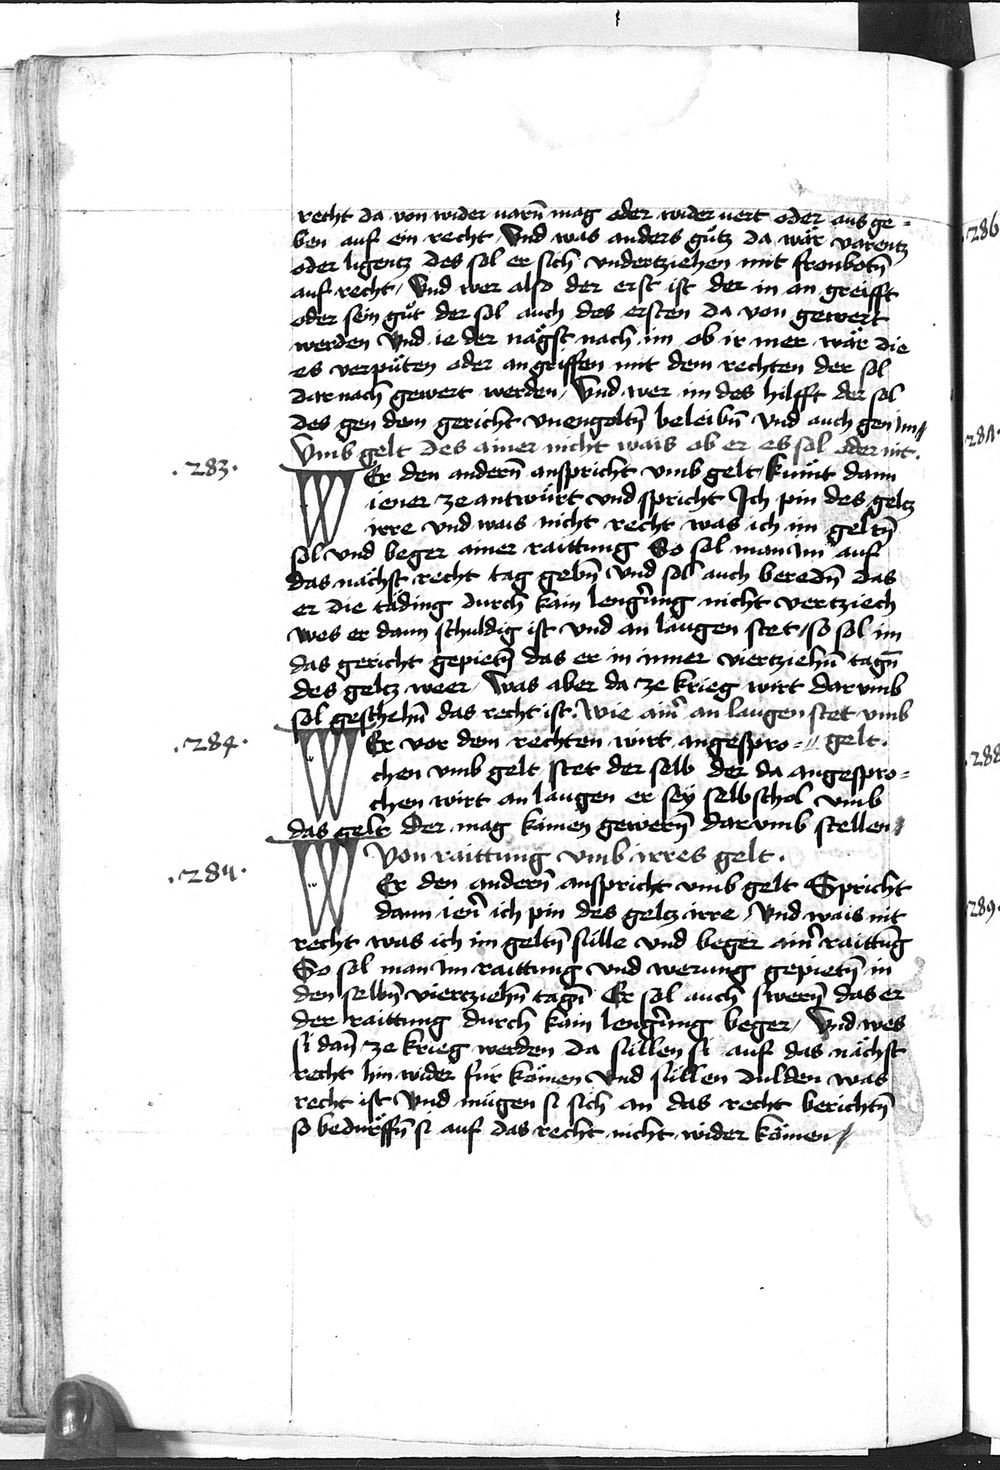 recht da von wider uarn̄ mag oder wider uert oder aus ge=
ben auf ein recht / Vnd was anders gůtz da wär varentz
oder ligentz des sol er sich vndertziehen mit fronbotn̄
auf recht / Vnd wer also der erst ist der in an greifft
oder sein gůt der sol auch des ersten da von gewert
werden Vnd ie der nägst nach im ob ir mer wär die
es verpüten oder angriffen mit dem rechten der sol
darnach gewert werden / Vnd wer im des hilfft der sol
des gen dem gericht vnengoltn̄ beleibn̄ Vnd auch gen im //
Vmb gelt des ainer nicht wais ob er es sol oder nit .
.283. WEr den andern̄ anspricht vmb gelt / kumt dann
iener ze antwürt vnd spricht Ich pin des geltz
irre vnd wais nicht recht was ich im geltn̄
sol vnd beger ainer raittung So sol man im auf
das nächst recht tag gebn̄ Vnd sol auch beredn̄ das
er die täding durch kain leng'ung nicht vertziech
wes er dann schuldig ist vnd an laugen stet / so sol im
das gericht gepietn̄ das er in inner viertziehn̄ tagn̄
des geltz weer / Was aber da ze krieg wirt dar vmb
sol geschehn̄ das recht ist . Wie ain' an laugen stet vmb
.284. WEr vor dem rechten wirt angespro= // gelt .
chen vmb gelt stet der selb der da angespro=
chen wirt an laugen er sey selbschol vmb
das gelt Der mag kainen gewern̄ darvmb stellen //
Von raittung vmb irres gelt .
.285. WEr den andern̄ anspricht vmb gelt Spricht
dann ien' ich pin des geltz irre / Vnd wais nit
recht was ich im geltn̄ sülle vnd beger ain' raittung
So sol man im raittung vnd werung gepietn̄ in
den selbn̄ viertziehn̄ tagn̄ Er sol auch swern̄ das er
der raittung durch kain leng'ung beger / Vnd wes
si dan̄ ze krieg werden da süllen si auf das nächst
recht hin wider für kömen Vnd süllen dulden was
recht ist Vnd mügen si sich an das recht berichtn̄
so bedurffn̄ si auf das recht nicht wider kömen //
286
288
289